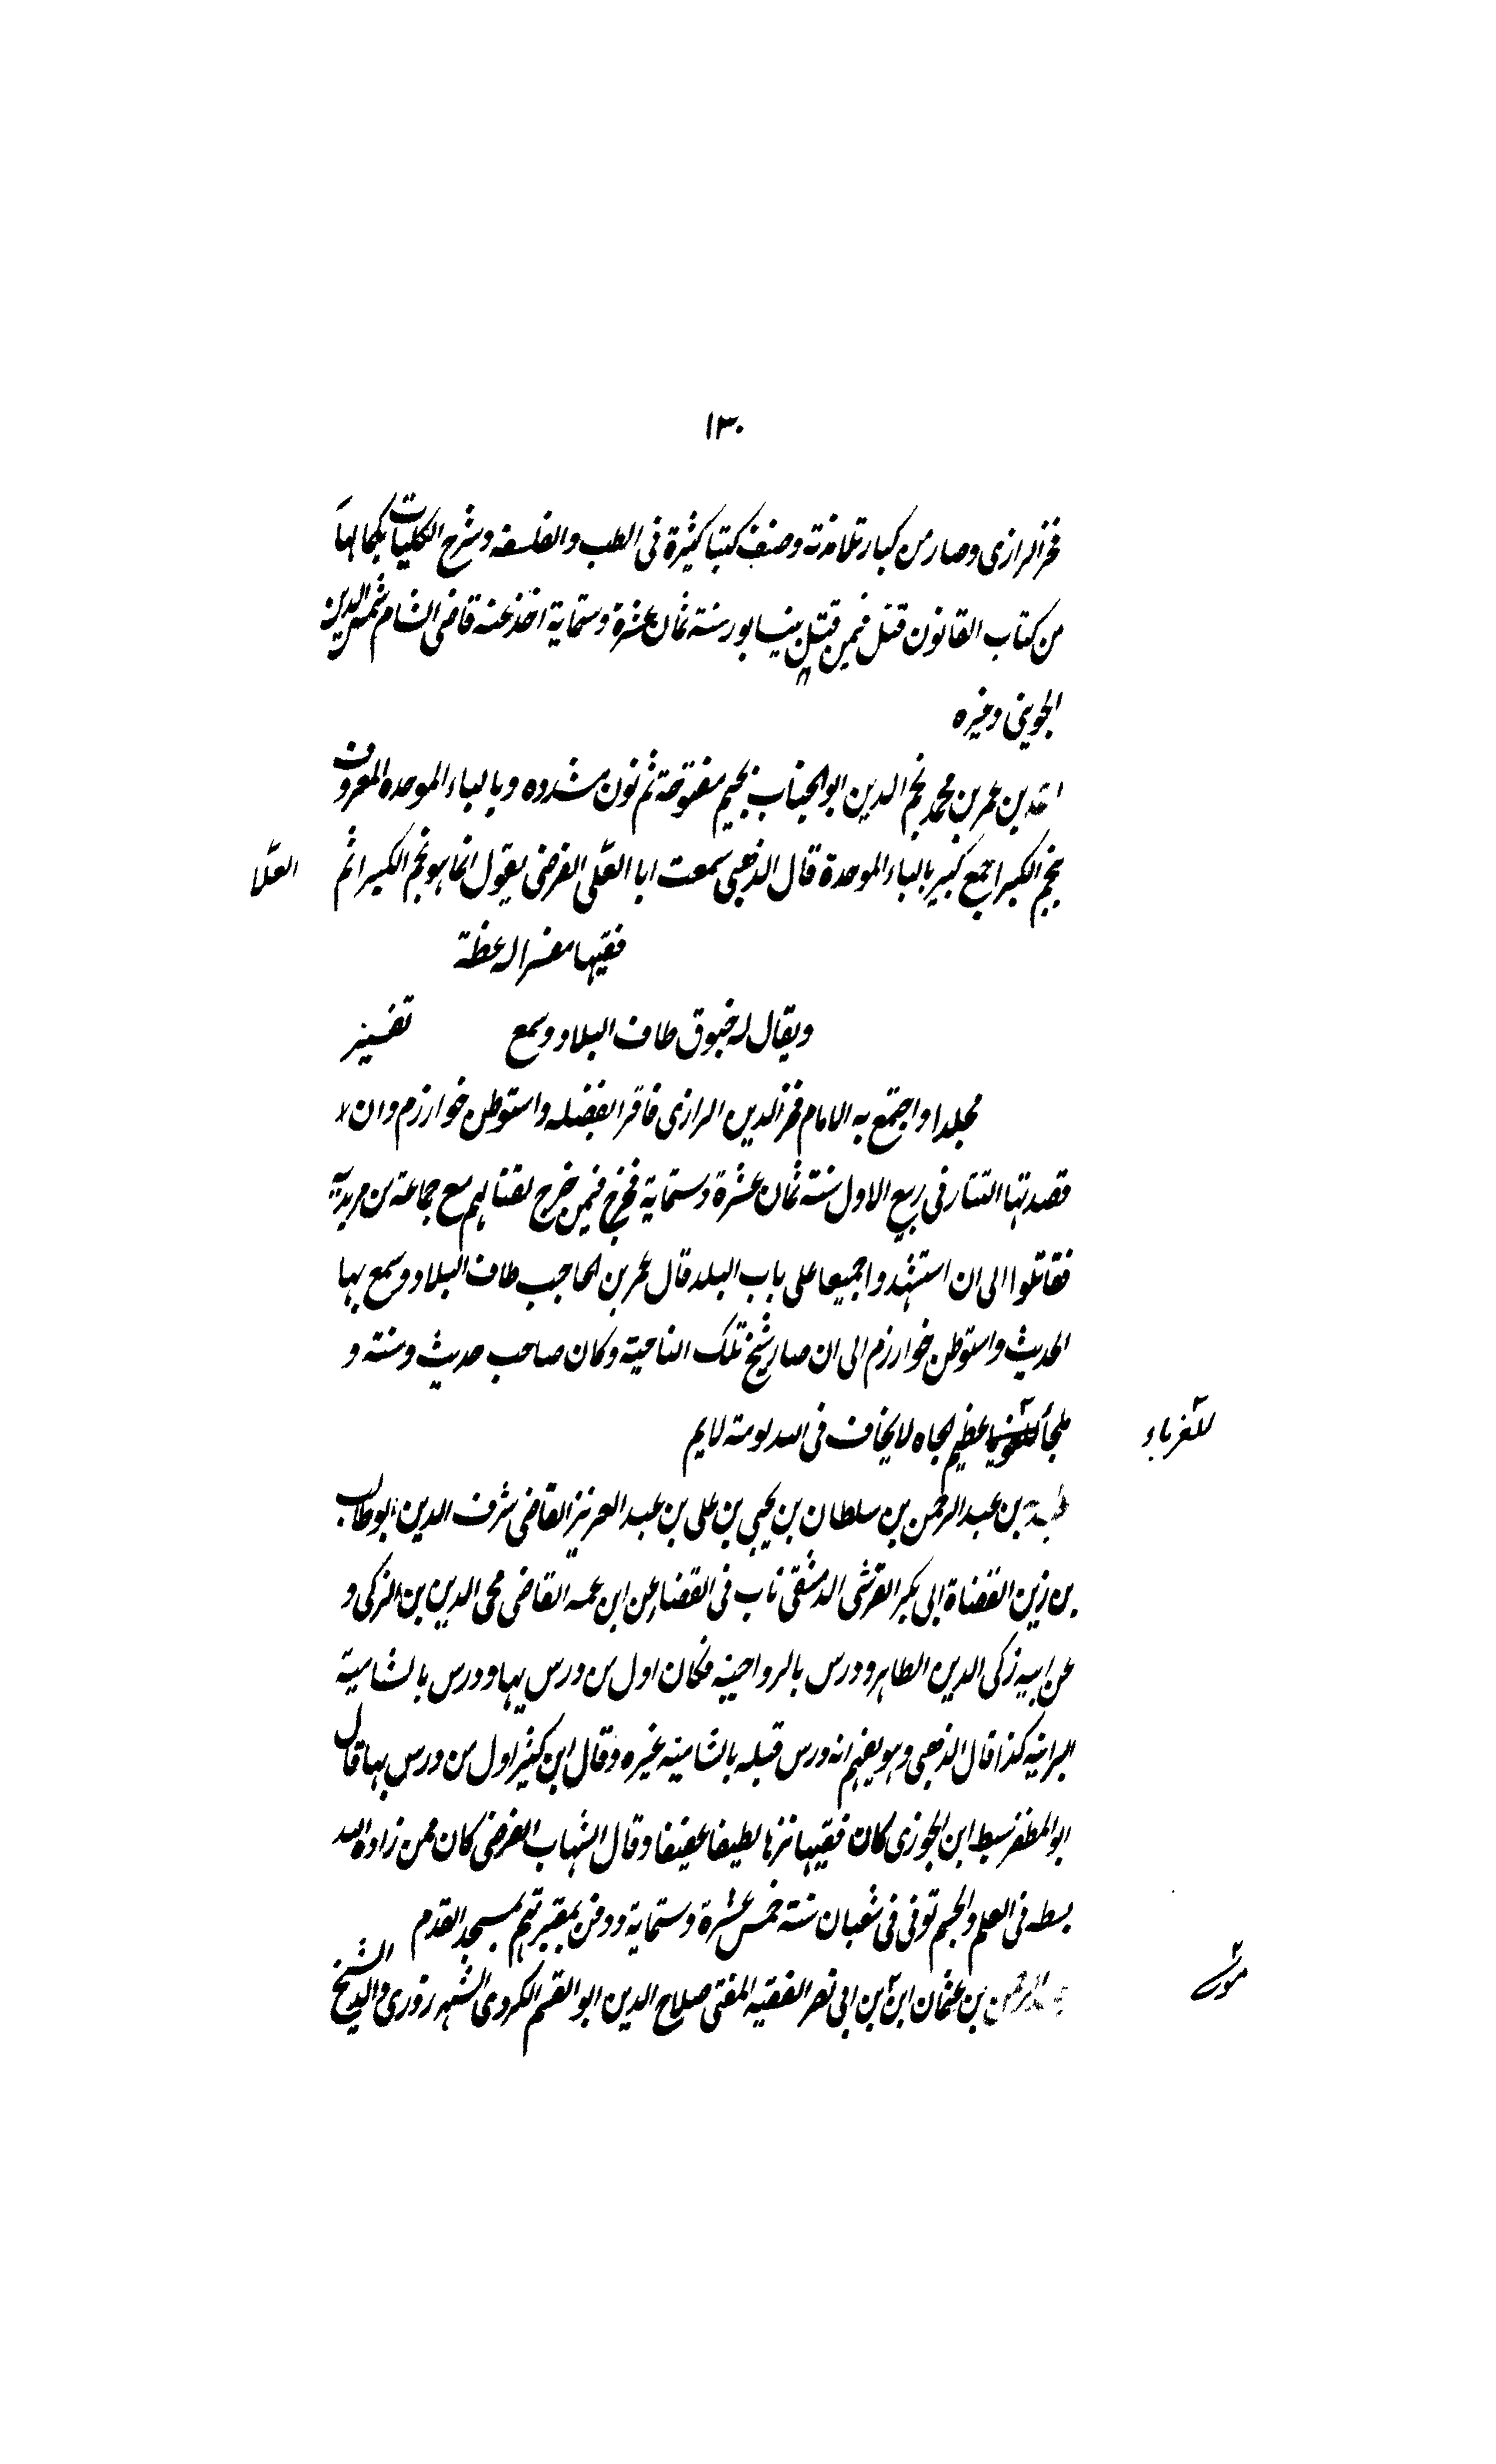 ١٣٠
فخر الرازى وصار من كبار تلامذته وصنف كتبا كثيرة فى الطب والفلسفه وشرح الكليات بكمالها
من كتاب القانون قتل فيمن قتل بنيسابور سنة ثمان عشرة وستماية اخذ عنه قاضى الشام شمس الدين
الجوينى وغيره
احمد بن عمر بن محمد نجم الدين ابو الجناب بجيم مفتوحة ثم نون مشدده وبالباء الموحده المعروف
بنجم الكبرا جمع كبير بالباء الموحدة قال الذهبى سمعت ابا العلى الفرضى يقول انما هو نجم الكبرا ثم
العلا
فقيها مفسرا له عظة
ويقال له خيوق طاف البلاد وسمع تفسير
مجلدا واجتمع به الامام فخر الدين الرازى فاقر بفضله واستوطن خوارزم وان لا
قصدتها التتار فى ربيع الاول سنة ثمان عشرة وستماية فخرج فيمن خرج لقتالهم مع جماعة من مريديه
فقاتلوا الى ان استشهدوا جميعا على باب البلد قال عمر بن الحاجب طاف البلاد وسمع بها
الحديث واستوطن خوارزم الى ان صار شيخ تلك الناحية وكان صاحب حديث وسنة و
ملجأ عظيم الجاه لا يخاف فى الله لومة لايم
للغرباء
بن عبد الرحمن بن سلطان بن يحيى بن على بن عبد العزيز القاضى شرف الدين ابو طالب
بن زين القضاة ابى بكر القرشى الدمشقى ناب فى القضاء عن ابن عمه القاضى محى الدين بن الزكى و
عن ابيه زكى الدين الطاهر ودرس بالرواحيه فكان اول من درس بها ودرس بالشامية
البرانيه كذا قال الذهبى وهو يفهم انه درس قبله بالشامية غيره وقال ابن كثير اول من درس بها قال
ابو المظفر سبط ابن الجوزى كان فقيها نزها لطيفا عفيفا وقال الشهاب الفرضى كان ممن زاده الله
بسطه فى العلم والجسم توفى فى شعبان سنة خمس عشرة وستماية ودفن بمقبرتهم بمسجد القدم
عبد الرحمن بن عثمان ابن بن ابى نصر الفقيه المفتى صلاح الدين ابو القسم الكردى الشهرزورى والد الشيخ
موسى